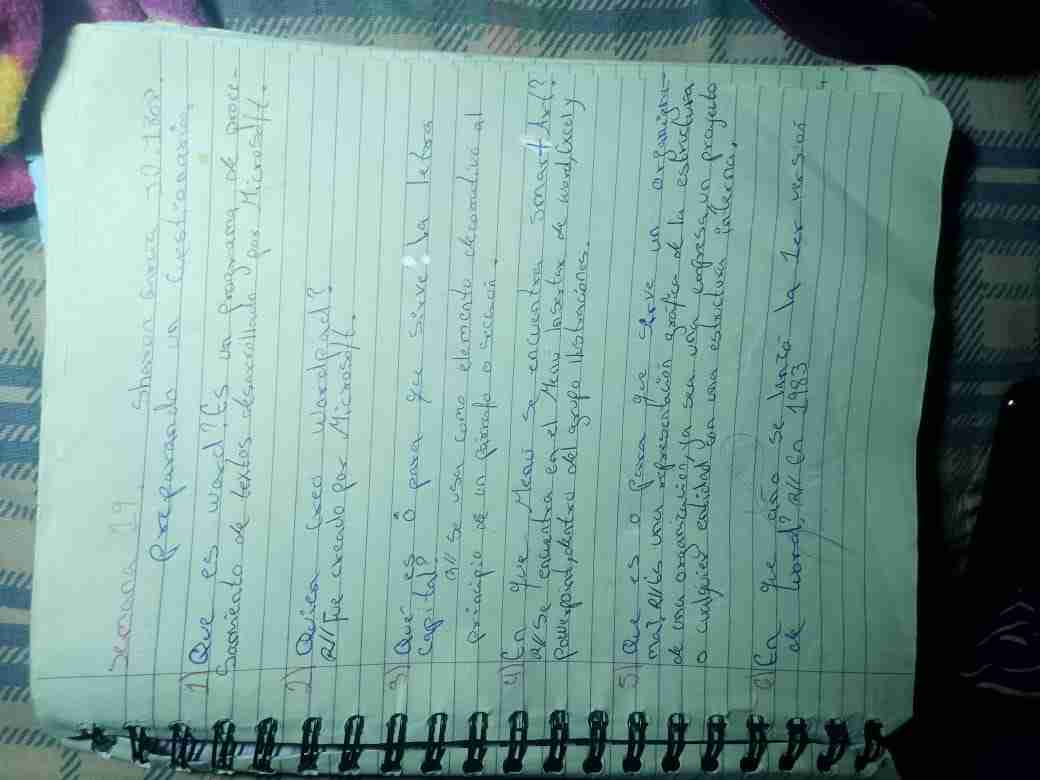 Semana 19. Sharon
Preparando un Cuestionario.
1) Que es word? Es un programa de proce-
samiento de textos desarrollado por Microsoft.
2) Quien creo Wordpad?
R// Fue creado por Microsoft.
3) Qué es o para que sirve la letra
capital?
R// Se usa como elemento decorativo al
principio de un párrafo o sección.
4) En que Menú se encuentra smart Art?
R// Se encuentra en el Menú Insertar de word, Excel y
Powerpoint, dentro del grupo Ilustraciones.
5) Que es o para que sirve un organigra-
ma?, R// Es una representación gráfica de la estructura
de una organización, ya sea una empresa, un proyecto
o cualquier entidad con una estructura interna.
6) En que año se lanzó la 1er versión
de word? R// En 1983